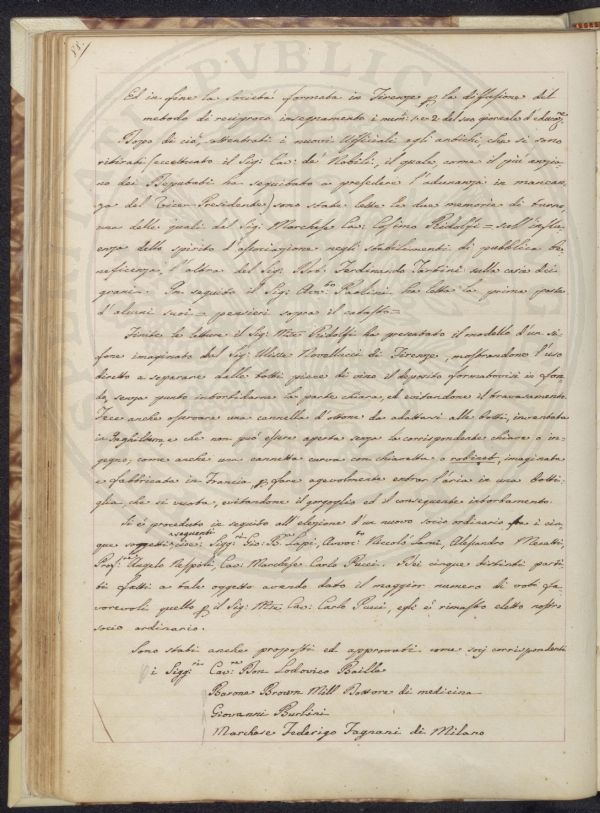 58.
Ed in fine la Società formata in Firenze p. la diffusione del
metodo di reciproco insegnamento i num: 1. e 2 del suo giornale d'educaz.ne
Dopo di ciò, sottentrati i nuovi Uffiziali agli antichi, che si sono
ritirati (eccettuato il Sig: Cav. de' Nobili, il quale, come il più anzia-
no dei Deputati ha seguitato a presedere l'adunanza in mancan-
za del Vice-Presidente) sono state lette le due memorie di turno,
una delle quali del Sig: Marchese Cav. Cosimo Ridolfi = sull'influ-
enza dello spirito d'associazione negli stabilimenti di pubblica be-
neficenza, l'altra del Sig: Ferdinando Tartini sulla casa dei
grani = In seguito il Sig: Avv:to Paolini ha letta la prima parte
d'alcuni suoi = pensieri sopra il catasto =
Finite le letture il Sig: Mse Ridolfi ha presentato il modello d'un si-
fone imaginato dal Sig: Ulisse Novellucci di Firenze, mostrandone l'uso
diretto a separare dalle botti piene di vino il deposito formatovisi in fon-
do, senza punto intorbidarne la parte chiara, ed evitandone il travasamento.
Fece anche osservare una cannella d'ottone da adattarsi alle botti, inventata
in Inghilterra, e che non può essere aperta senza la corrispondente chiave o in-
gegno; come anche una cannetta curva con chiavetta o robinet, imaginata
e fabbricata in Francia, p. fare agevolmente entrar l'aria in una botti-
glia, che si vuota, evitandone il gorgoglio ed il conseguente intorbamento.
Si è proceduto in seguito all'elezione d'un nuovo socio ordinario fra i cin-
que soggetti seguenti cioè: Sigg:ri Gio: B.ta Lapi, Avvoc:to Niccolò Lami, Alessandro
Prof:re Angelo Nespoli, Cav: Marchese Carlo Pucci. Dei cinque distinti parti-
ti fatti a tale oggetto avendo dato il maggior numero di voti fa-
vorevoli quello p. il Sig: Mse Cav: Carlo Pucci, egli è rimasto eletto nostro
socio ordinario.
Sono stati anche proposti ed approvati come socj corrispondenti
i Sigg:ri Cav:re Bon Lodovico Baille
Barone Brown Mill Dottore di medicina
Giovanni Burlini
Marchese Federigo Fagnani di Milano